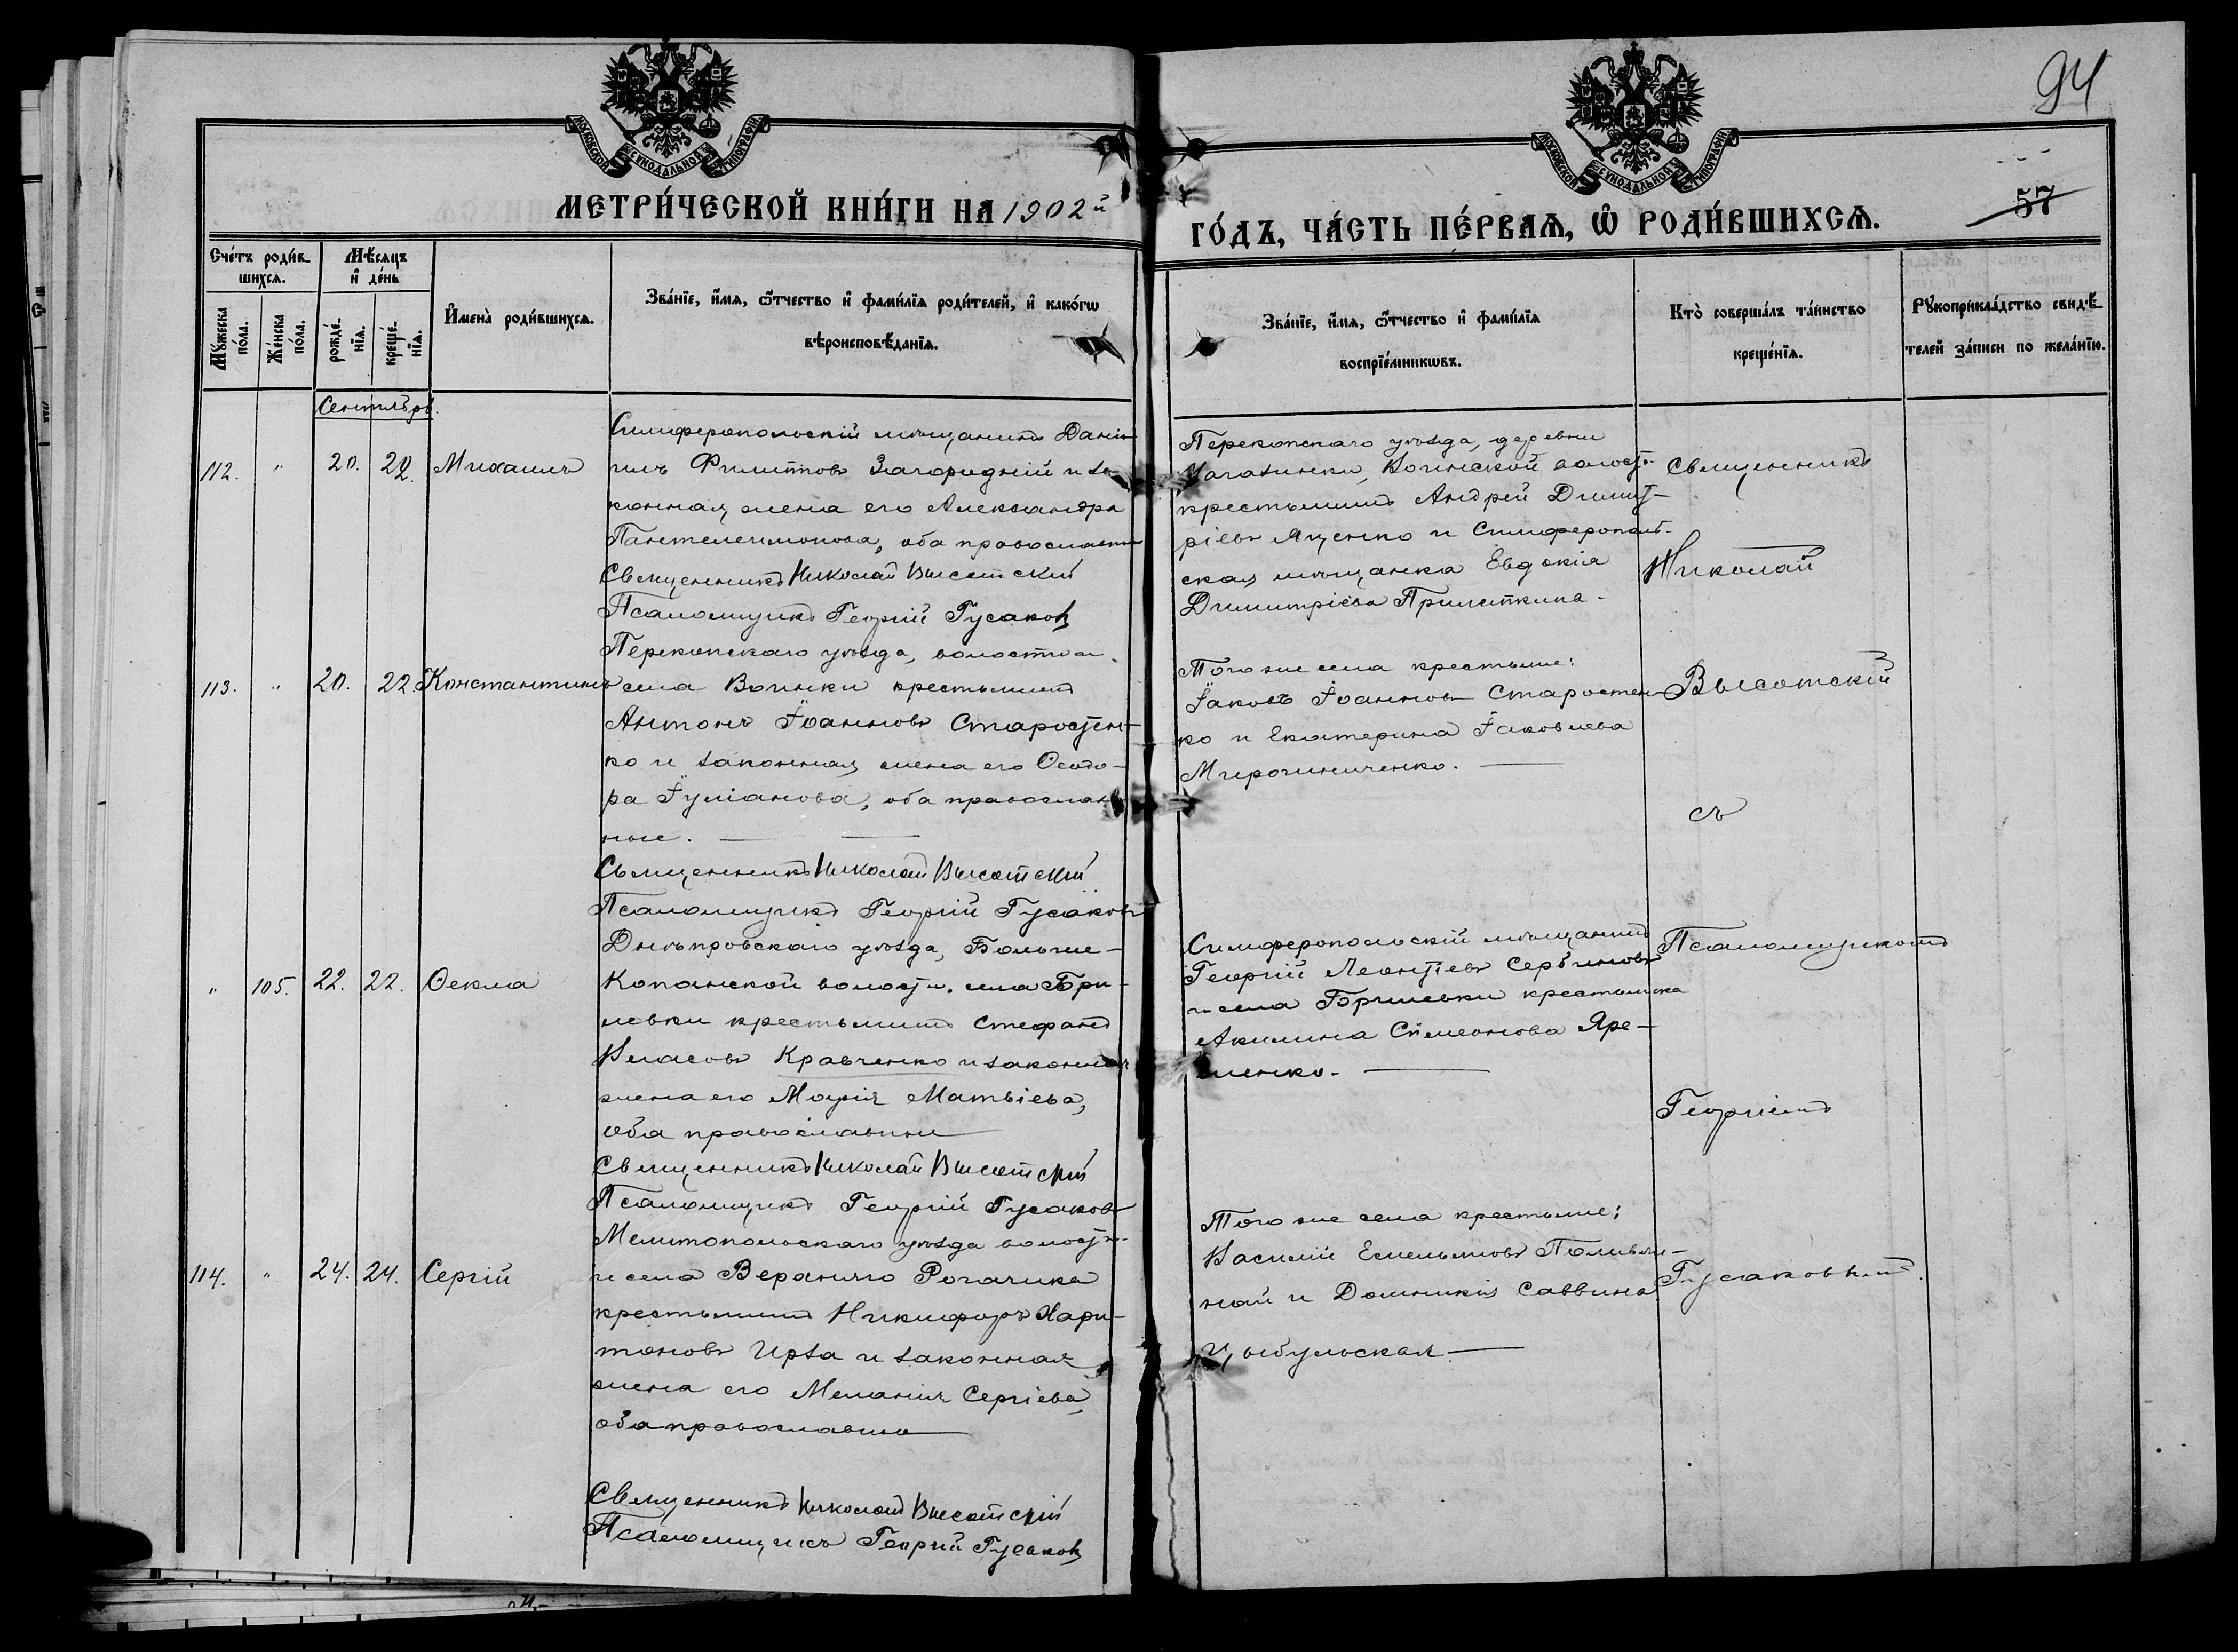 94
МОСКОВСКОЙ СѴНОДАЛЬНОЙ ТИПОГРАФІИ
МЕТРИ́ЧЕСКОЙ КНИ́ГИ НА 1902й
МОСКОВСКОЙ СѴНОДАЛЬНОЙ ТИПОГРАФІИ
ГО́ДЪ, ЧА́СТЬ ПЕ́РВАѦ, Ѿ РОДИ́ВШИХСѦ.
57
Сче́тъ роди́в-
шихсѧ.
Мꙋ́жеска по́ла.
Же́нска по́ла.
Мѣ́сѧцъ
и҆ де́нь
рожде́-
нїѧ.
креще́-
нїѧ.
И҆мена̀ роди́вшихсѧ.
Зва́нїе, и҆́мѧ, ѻ҆́тчество и҆ фами́лїѧ роди́телей, и҆ како́гѡ
вѣроисповѣ́данїѧ.
Зва́нїе, и҆́мѧ, ѻ҆́тчество и҆ фами́лїѧ
воспрїе́мникѡвъ.
Кто̀ соверша́лъ та́инство
креще́нїѧ.
Рꙋкоприкла́дство свидѣ́-
телей за́писи по жела́нїю.
Сентябрь.
112. " 20. 22. Михаилъ
Симферопольскій мѣщанинъ Дані-
илъ Филипповъ Загородній и за-
конная жена его Александра
Пантелеимонова, оба православн
Священникъ Николай Высотскій
Псаломщикъ Георгій Гусаковъ
Перекопскаго уѣзда, деревни
Воинской волост.
крестьянинъ Андрей Димит-
ріевъ Яценко и Симферополь-
ская мѣщанка Евдокія
Димитріева
113. " 20. 22 Константинъ
Перекопскаго уѣзда, волости и
села Воинки крестьянинъ
Антонъ Іоанновъ Старостен-
ко и законная жена его Ѳеодо-
ра Іуліанова, оба православ-
ные.
Священникъ Николай Высотскій
Псаломщикъ Георгій Гусаковъ
Того же села крестьяне:
Іаковъ Іоанновъ Старостен-
ко и Екатерина Іаковлева
Мирошниченко.
" 105. 22. 22. Ѳекла
Днѣпровскаго уѣзда, Больше-
Копанской волости. села Бри-
левки крестьянинъ Стефанъ
Власовъ Кравченко и законная
жена его Марія Матвіева,
оба православные
Священникъ Николай Высотскій
Псаломщикъ Георгій Гусаковъ
Симферопольскій мѣщанинъ
Георгій Леонтіевъ Сербиновъ
и села крестьянка
Акилина Симеонова Яре-
менко.
114. " 24. 24. Сергій
Мелитопольскаго уѣзда волост-
и села Верхняго Рогачика
крестьянинъ Никифоръ Хари-
тоновъ Ирза и законная
жена его Меланія Сергіева,
оба православные
Священникъ Николай Высотскій
Псаломщикъ Георгій Гусаковъ
Того же села крестьяне:
Василій Емельяновъ Поливя-
ный и Домникія Саввина
Цыбульская
Священникъ
Николай
Высотскій
съ
Псаломщикомъ
Георгіемъ
Гусаковымъ.